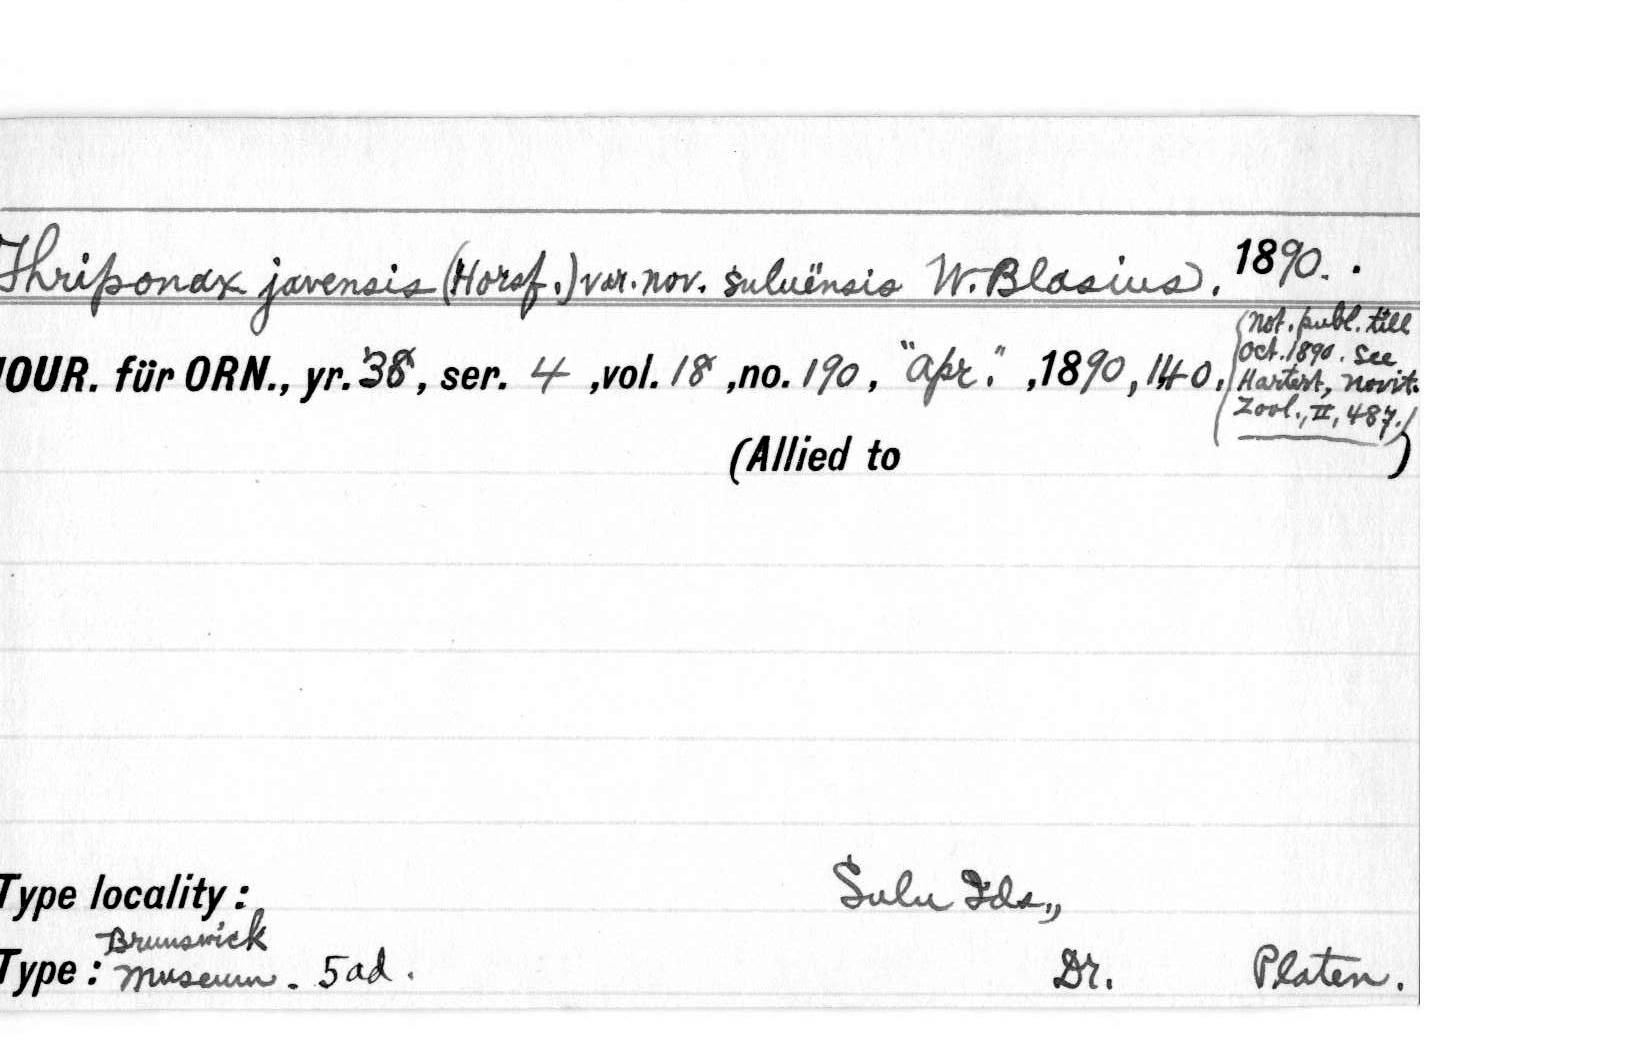 Thriponax javensis (Horsf.) var. nov. suluënsis W. Blasius. 1890. .
JOUR. für ORN., yr. 38, ser. 4 ,vol. 18 ,no. 190, "Apr." ,1890, 140.
(Not. publ. till
Oct. 1890. See
Hartert, Novit.
Zool., II, 487.)
(Allied to )
Type locality : Sulu Ids.,
Brunswick
Type : Museum. 5 ad. Dr. Platen.